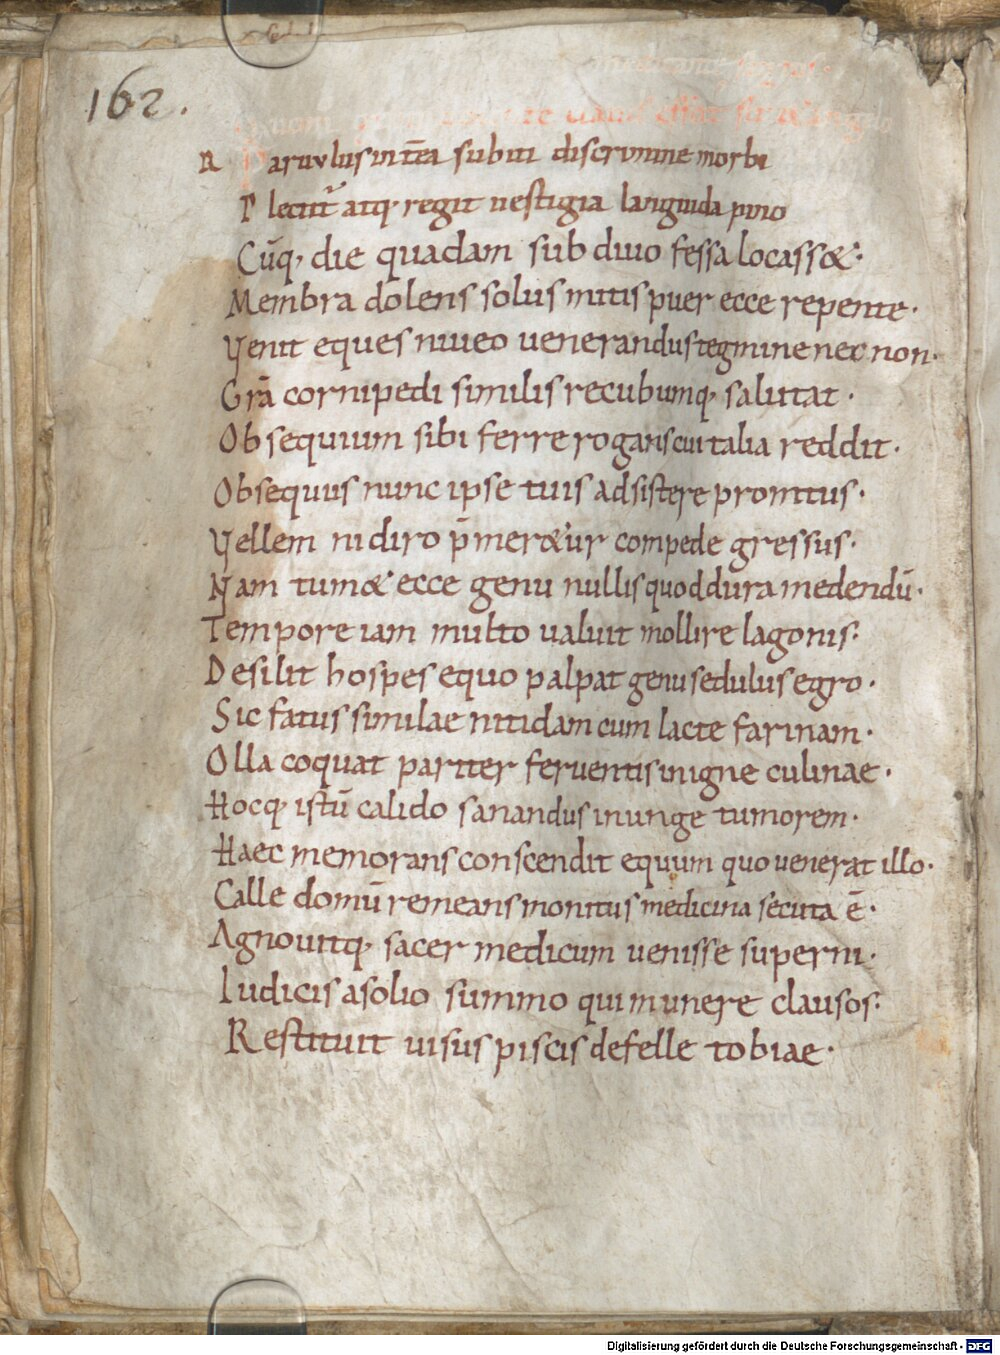 162.
aruulus interea subiti discrimine morbi
Plectit᷒ atq· regit uestigia languida pino
Cūq· die quadam sub diuo fessa locasset·
Membra dolens solus mitis puer ecce repente·
Venit eques niueo uenerandus tegmine nec non·
Grā cornipedi similis recubumq· salutat·
Obsequium sibi ferre rogans cui talia reddit·
Obsequiis nunc ipse tuis adsistere promtus·
Vellem ni diro p̄meretur compede gressus·
Nam tumet ecce genu nullis quod dura medendū·
Tempore iam multo ualuit mollire lagonis·
Desilit hospes equo palpat genu sedulus egro·
Sic fatus similae nitidam cum lacte farinam·
Olla coquat pariter feruentis inigne culinae·
Hocq· istū calido sanandus inunge tumorem·
Haec memorans conscendit equum quo uenerat illo·
Calle domū remeans monitus medicina secuta ē·
Agnouitq· sacer medicum uenisse superni·
Iudicis asolio summo qui munere clausos·
Restituit uisus piscis defelle tobiae·
Digitalisierung gefördert durch die Deutsche Forschungsgemeinschaft - DFG